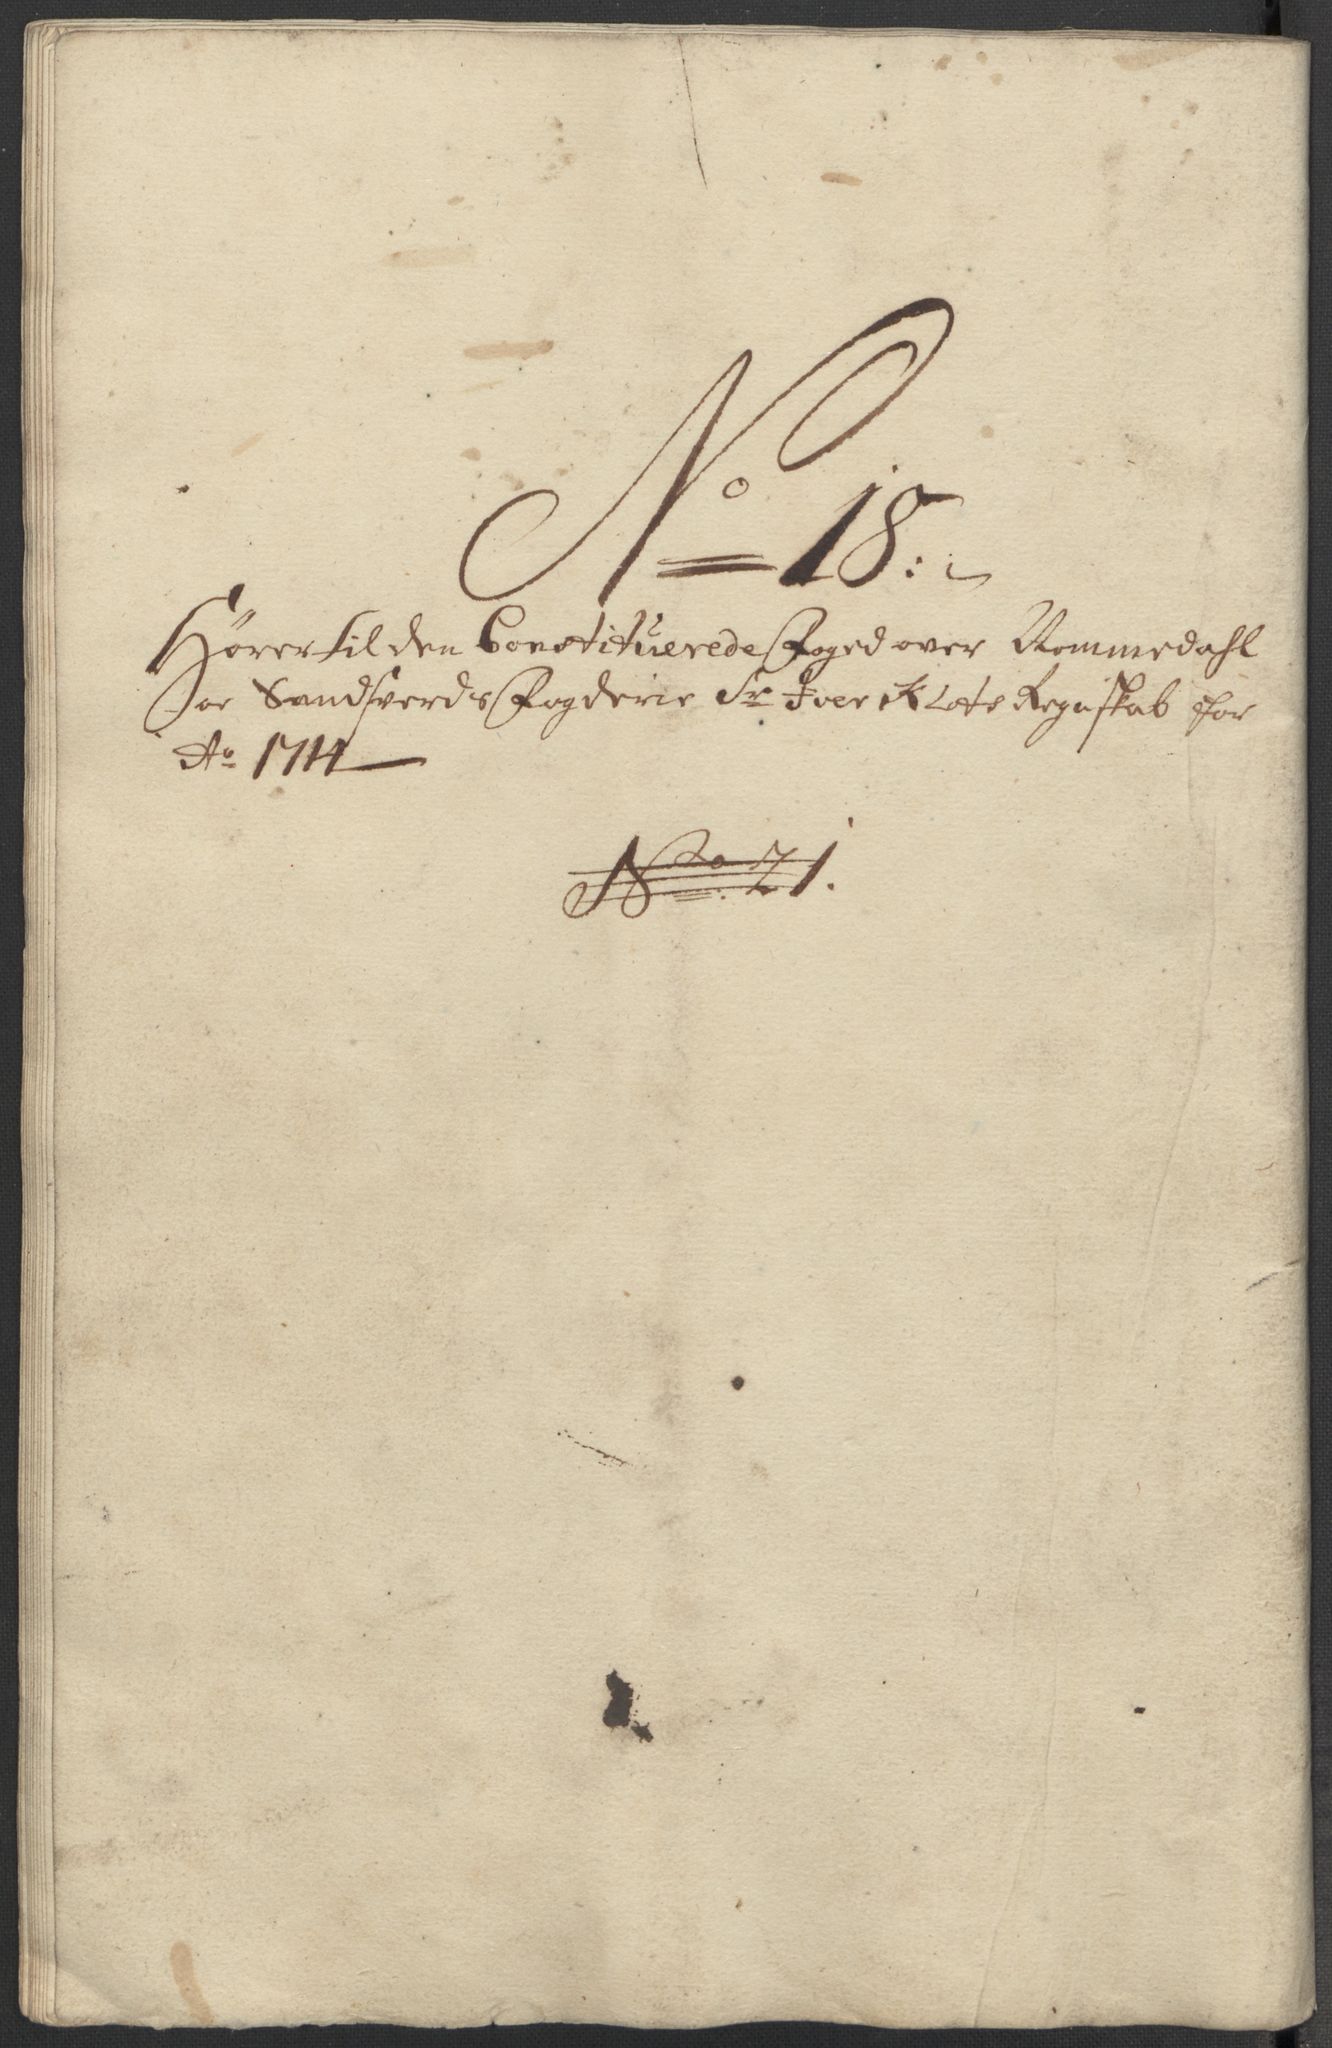 No 18.
Hører til den Constituerede Foged over Nommedahl
oc Sandsverds Fogderie Sr Iver Klots Regnskab for
Ao 1714
No 21.